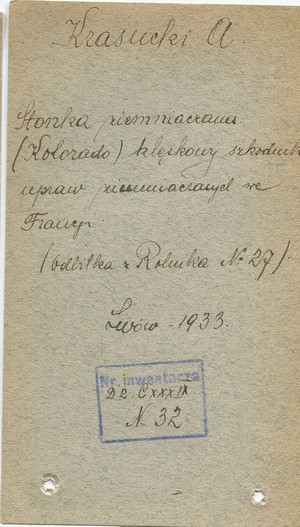 Krasucki A
Stonka ziemniaczana
(Kolorado) klęskowy szkodnik
upraw ziemniaczanych we
Francji
(odbitka z Rolnika № 27)
Lwów - 1933.
Nr. inwentarza
D2. CXXXIX
N. 32.